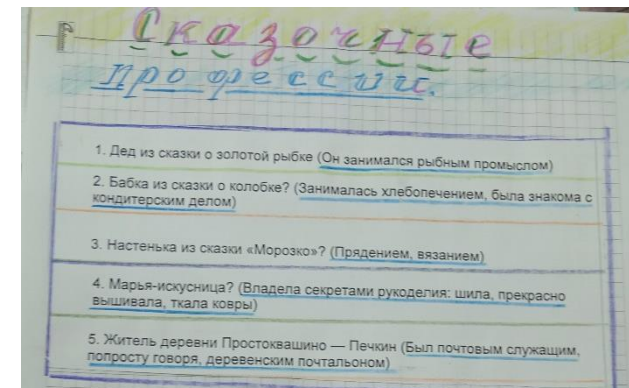 Сказочные
профессии.
1. Дед из сказки о золотой рыбке (Он занимался рыбным промыслом)
2. Бабка из сказки о колобке? (Занималась хлебопечением, была знакома с
кондитерским делом)
3. Настенька из сказки «Морозко»? (Прядением, вязанием)
4. Марья-искусница? (Владела секретами рукоделия: шила, прекрасно
вышивала, ткала ковры)
5. Житель деревни Простоквашино — Печкин (Был почтовым служащим,
попросту говоря, деревенским почтальоном)